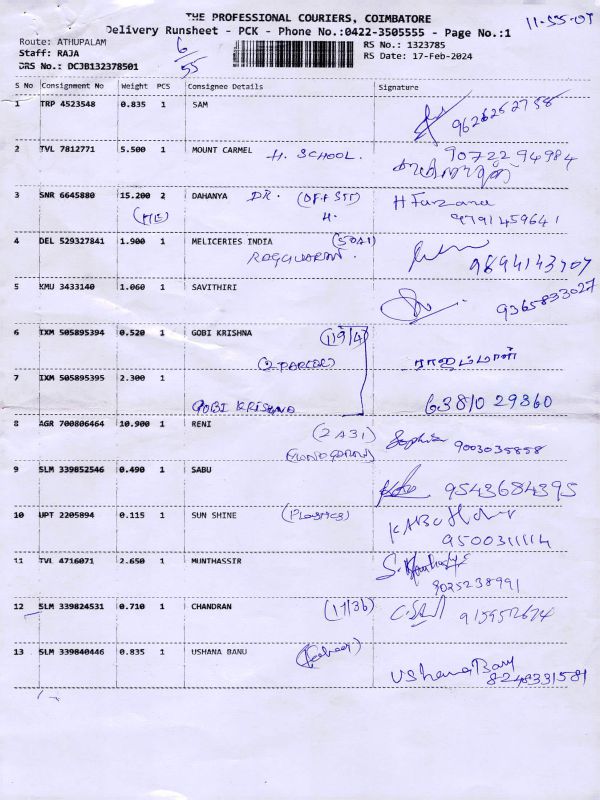 THE PROFESSIONAL COURIERS, COIMBATORE
11-55-07
Delivery Runsheet - PCK - Phone No.:0422-3505555 - Page No.:1
Route: ATHUPALAM
6/55
RS No.: 1323785
Staff: RAJA
RS Date: 17-Feb-2024
DRS No.: DCJB132378501
S No Consignment No Weight PCS Consignee Details Signature
1 TRP 4523548 0.835 1 SAM
9626252758
2 TVL 7812771 5.500 1 MOUNT CARMEL H. SCHOOL.
90722 94984
3 SNR 6645880 15.200 2 DAHANYA DR. H Farzana
(HE) H. 9791459641
4 DEL 529327841 1.900 1 MELICERIES INDIA (50A1)
9894143707
5 KMU 3433140 1.060 1 SAVITHIRI
9365833027
6 IXM 505895394 0.520 1 GOBI KRISHNA (119/4)
(2 PARCEL) ராஜம்மாள்
7 IXM 505895395 2.300 1
GOBI KRISHNA 63810 29860
8 AGR 700806464 10.900 1 RENI (2A31) Sophia 9003035858
9 SLM 339852546 0.490 1 SABU
9543684395
10 UPT 2205894 0.115 1 SUN SHINE (Plastics)
9500311114
11 TVL 4716071 2.650 1 MUNTHASSIR
9025238991
12 SLM 339824531 0.710 1 CHANDRAN (17/36)
915952674
13 SLM 339840446 0.835 1 USHANA BANU
Ushana Banu
8248331581